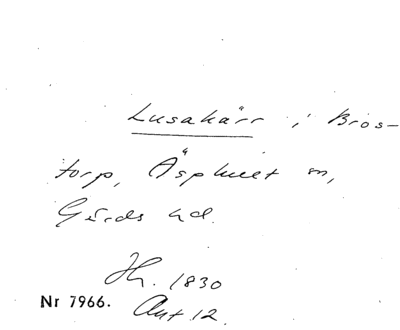 Lusakärr i Bros-
torp, Äsphult sn,
Gärds hd.
Hh. 1830
Nr 7966. Akt 12.